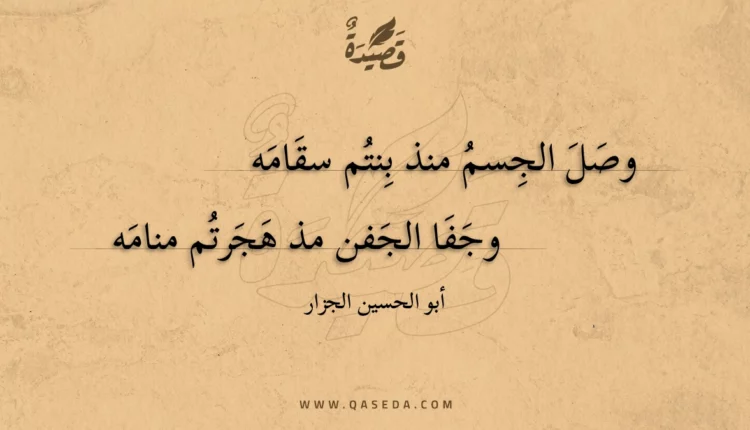 قَصِيْدَةٌ
وصَلَ الجِسمُ منذ بِنتُم سقَامَه
وجَفَا الجَفن مذ هَجَرتُم منامَه
أبو الحسين الجزار
WWW.QASEDA.COM